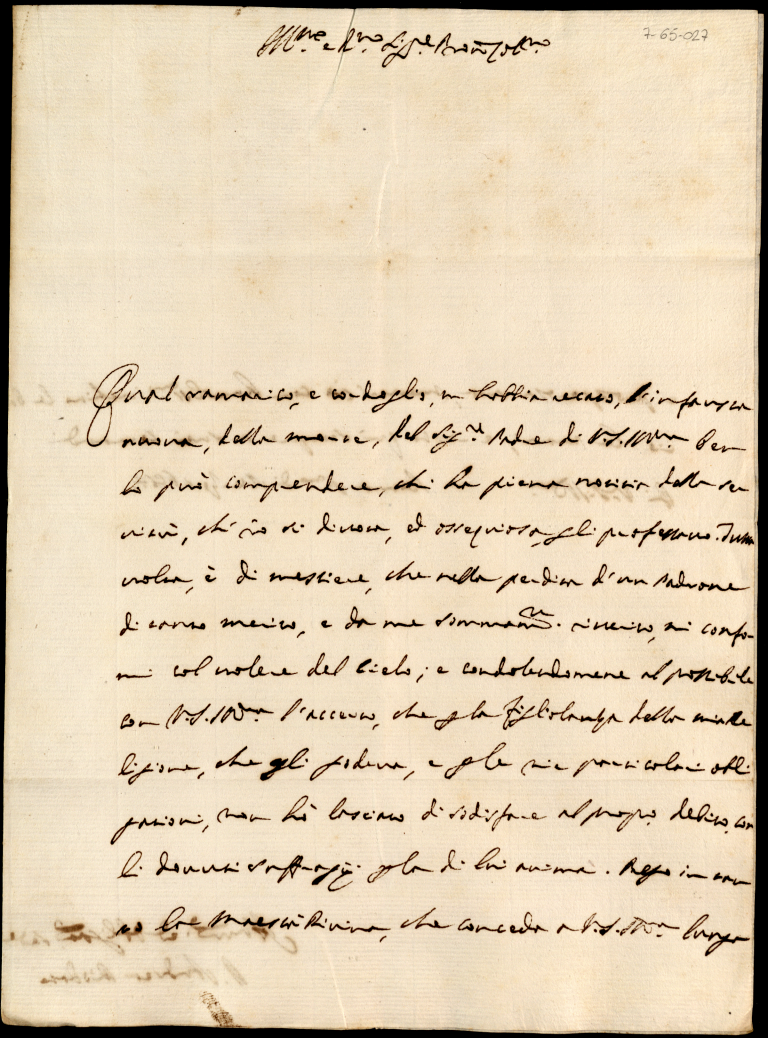 7-65-027
Ill.mo e R.mo Sig.re Pron Col.mo
Qual ramarico, e cordoglio, mi habbia recato, l'infausta
nuova, della morte, del Sig.re Padre di V.S. Ill.ma ben
lo può comprendere, chi ha piena notitia della ser
vitù, ch'io sì divota, ed ossequiosa gli professavo. Tutta
volta, è di mestiere, che nella perdita d'un Padrone
di tanto merito, e da me sommam.te riverito, mi confor
mi col volere del Cielo; e condolendomene al possibile
con V.S. Ill.ma l'accerto, che p la figliolanza della mia Re
ligione, che gli godeva, e p le mie particolari obli
gationi, non hò lasciato di sodisfare al propo debito, con
li dovuti suffragij p la di lui anima. Prego in tan
to la Maestà Divina, che conceda a V.S. Ill.ma lunga